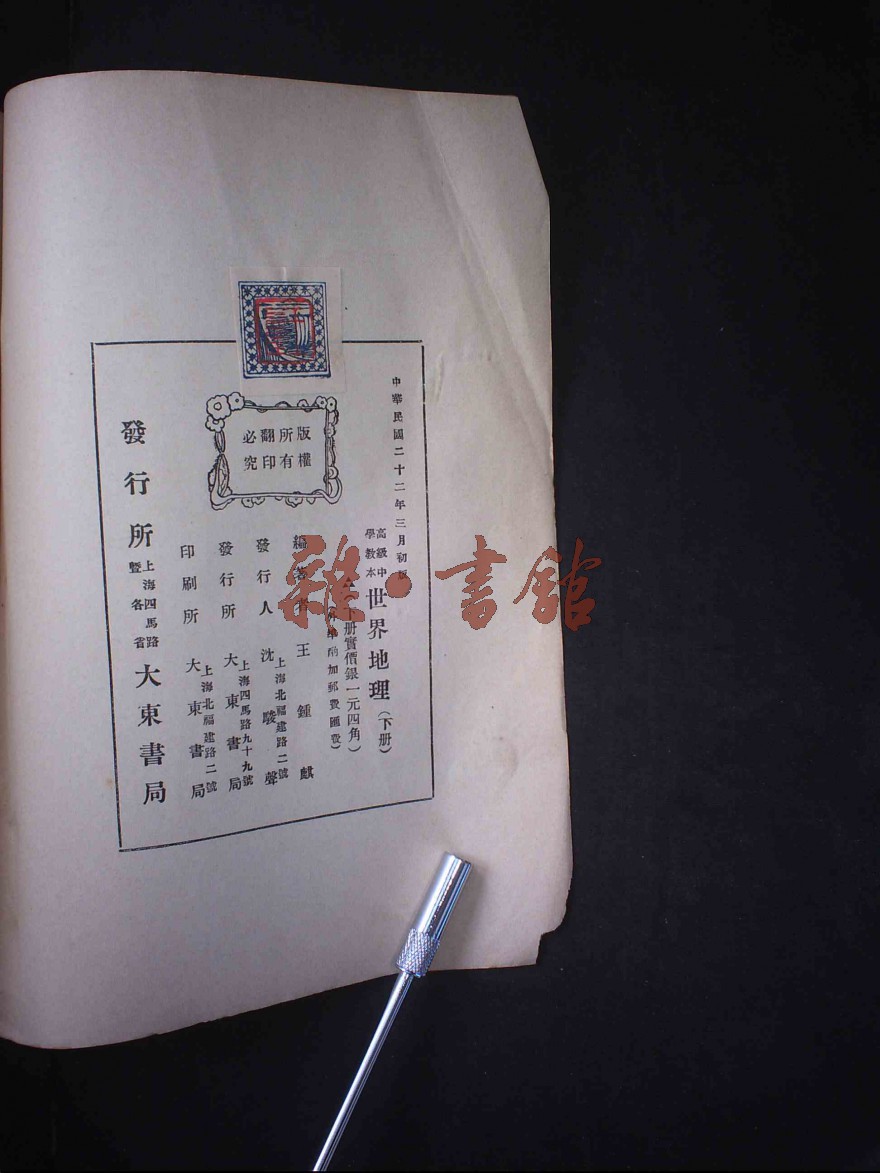 中華民國二十二年三月初版
高級中學教本 世界地理（下册）
下册實價銀一元四角）
酌加郵費匯費）
版權所有
翻印必究
編著者 王鍾麒
發行人 沈駿聲
上海北福建路二號
發行所 大東書局
上海四馬路九十九號
印刷所 大東書局
上海北福建路二號
發行所 上海四馬路暨各省 大東書局
雜·書館